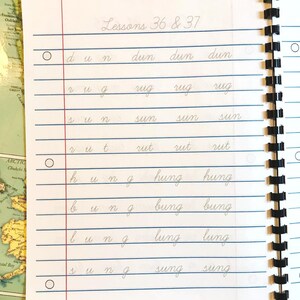 Lessons 36 & 37
d u n dun dun dun
r u g rug rug rug
s u n sun sun sun
r u t rut rut rut
h u n g hung hung
b u n g bung bung
l u n g lung lung
s u n g sung sung